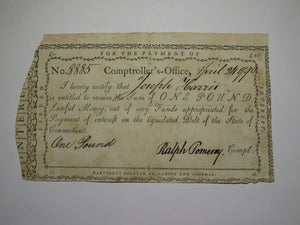 FOR THE PAYMENT OF
No. 8885 Comptroller's-Office, April 24 1790
I hereby certify that Joseph Harris
is entitled to receive the Sum of ONE POUND
Lawful Money, out of any Funds appropriated for the
Payment of interest on the liquidated Debt of the State of
Connecticut.
One Pound Ralph Pomeroy Compt.
HARTFORD: PRINTED BY HUDSON AND GOODWIN.